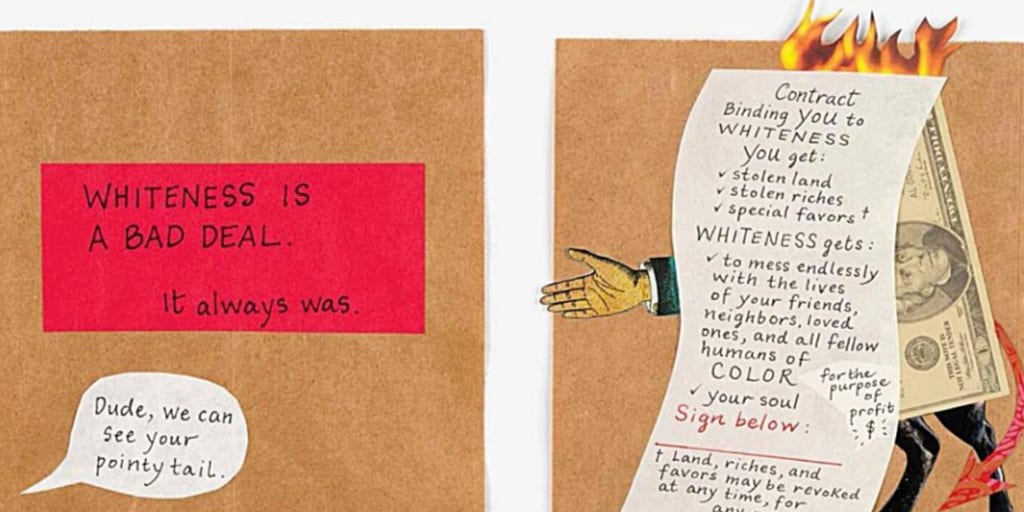 WHITENESS IS
A BAD DEAL.
It always was.
Dude, we can
see your
pointy tail.
Contract
Binding YOU to
WHITENESS
You get:
✓ stolen land
✓ stolen riches
✓ special favors †
WHITENESS gets:
✓ to mess endlessly
with the lives
of your friends,
neighbors, loved
ones, and all fellow
humans of
COLOR
✓ your soul
Sign below:
for the
purpose
of
profit
$
† Land, riches, and
favors may be revoked
at any time, for
THIS NOTE IS
LEGAL TENDER